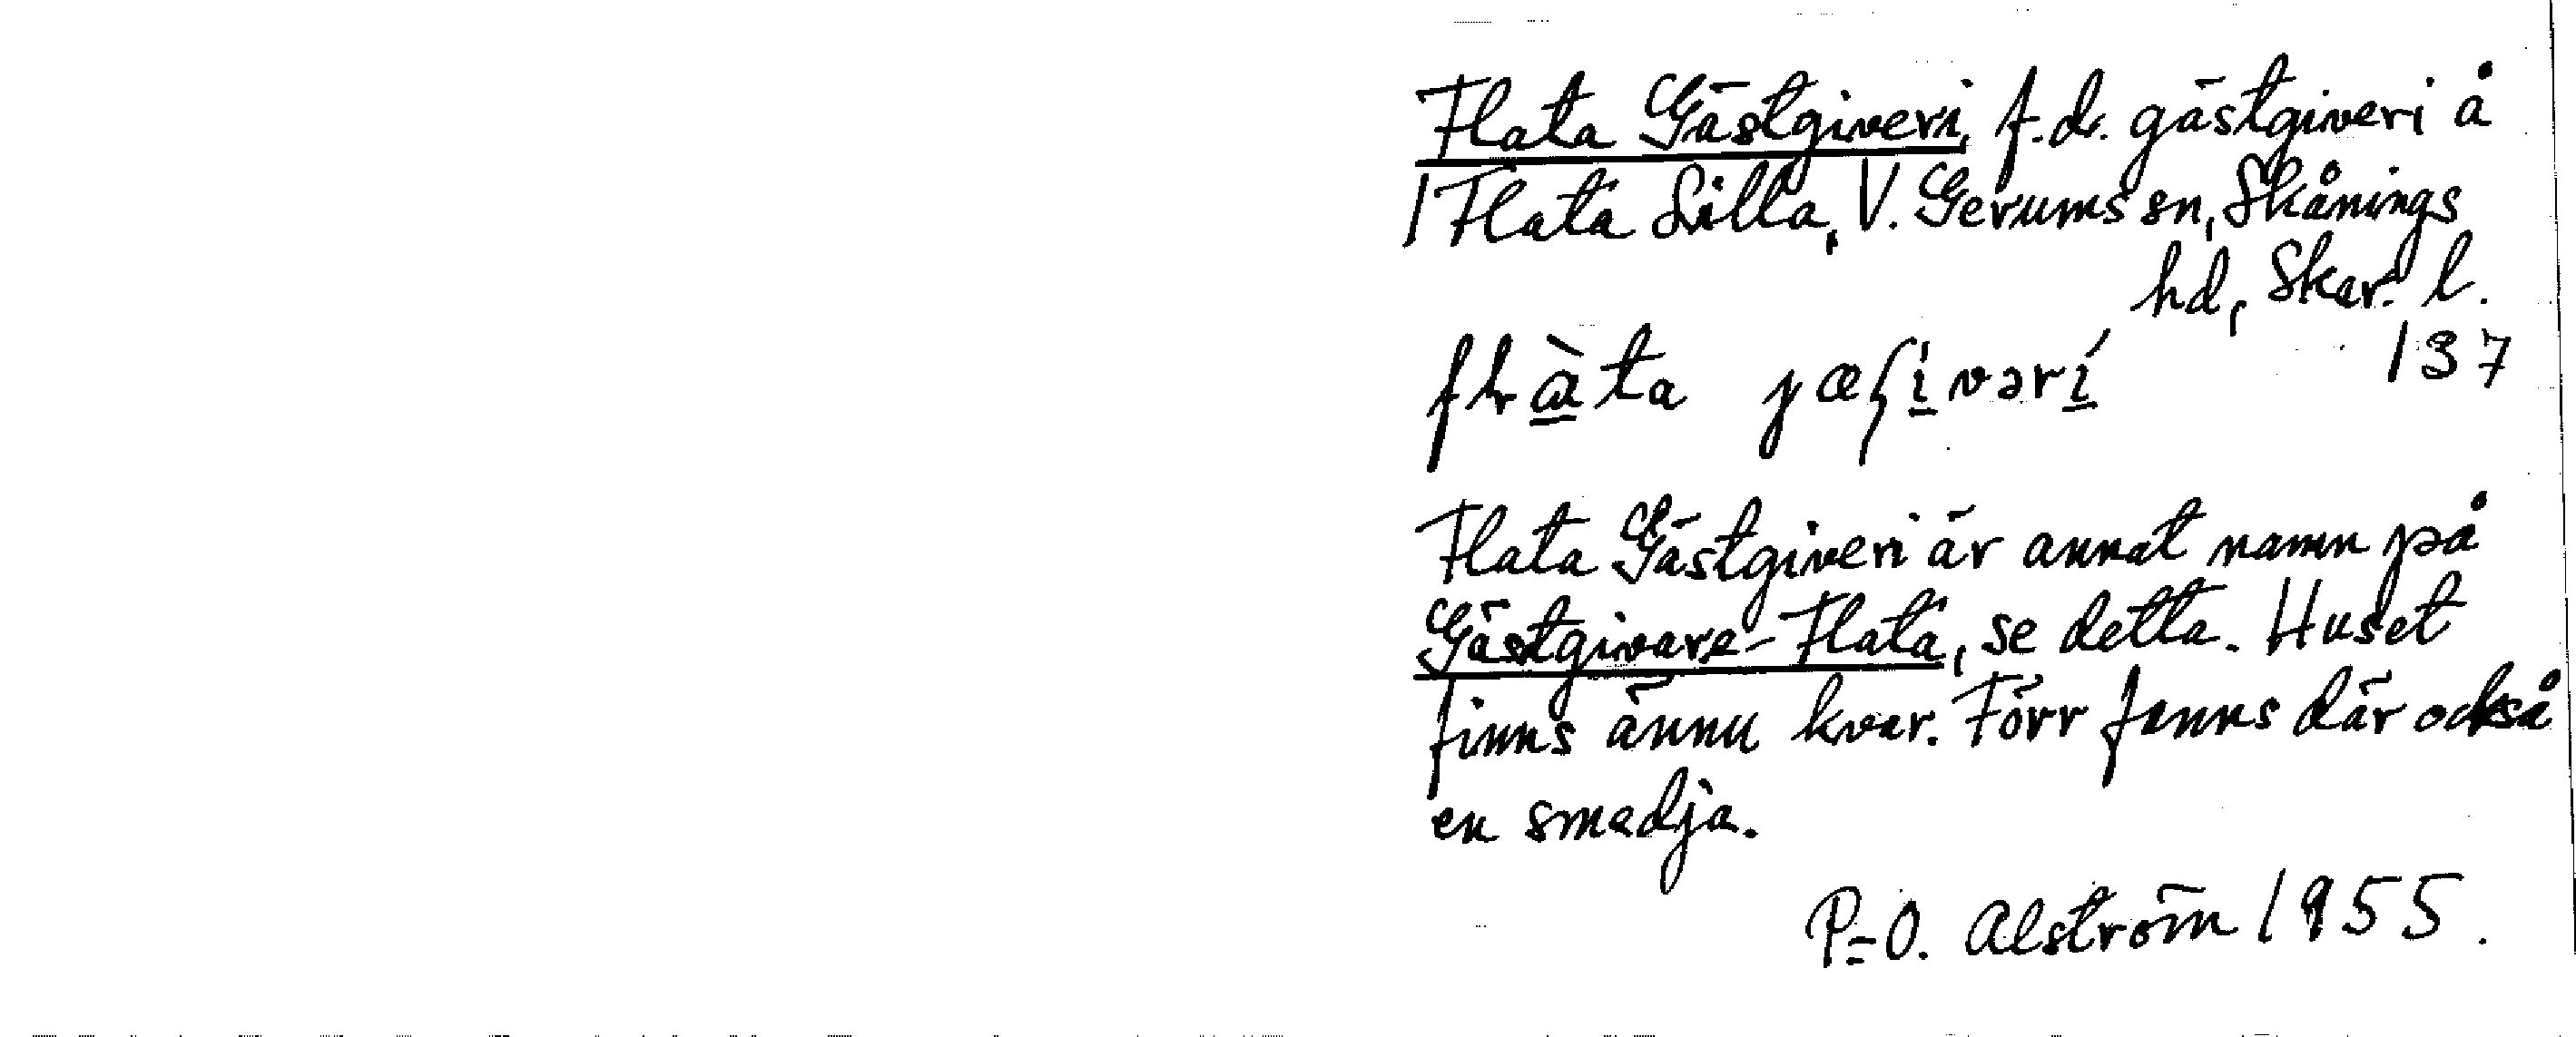 Flata Gästgiveri, f.d. gästgiveri å
1 Flata Lilla, V. Gerums sn, Skånings
hd, Skar. l.
137
Flata Gästgiveri är annat namn på
Gästgivare-Flata, se detta. Huset
finns ännu kvar. Förr fanns där också
en smedja.
P-O. Alström 1955.